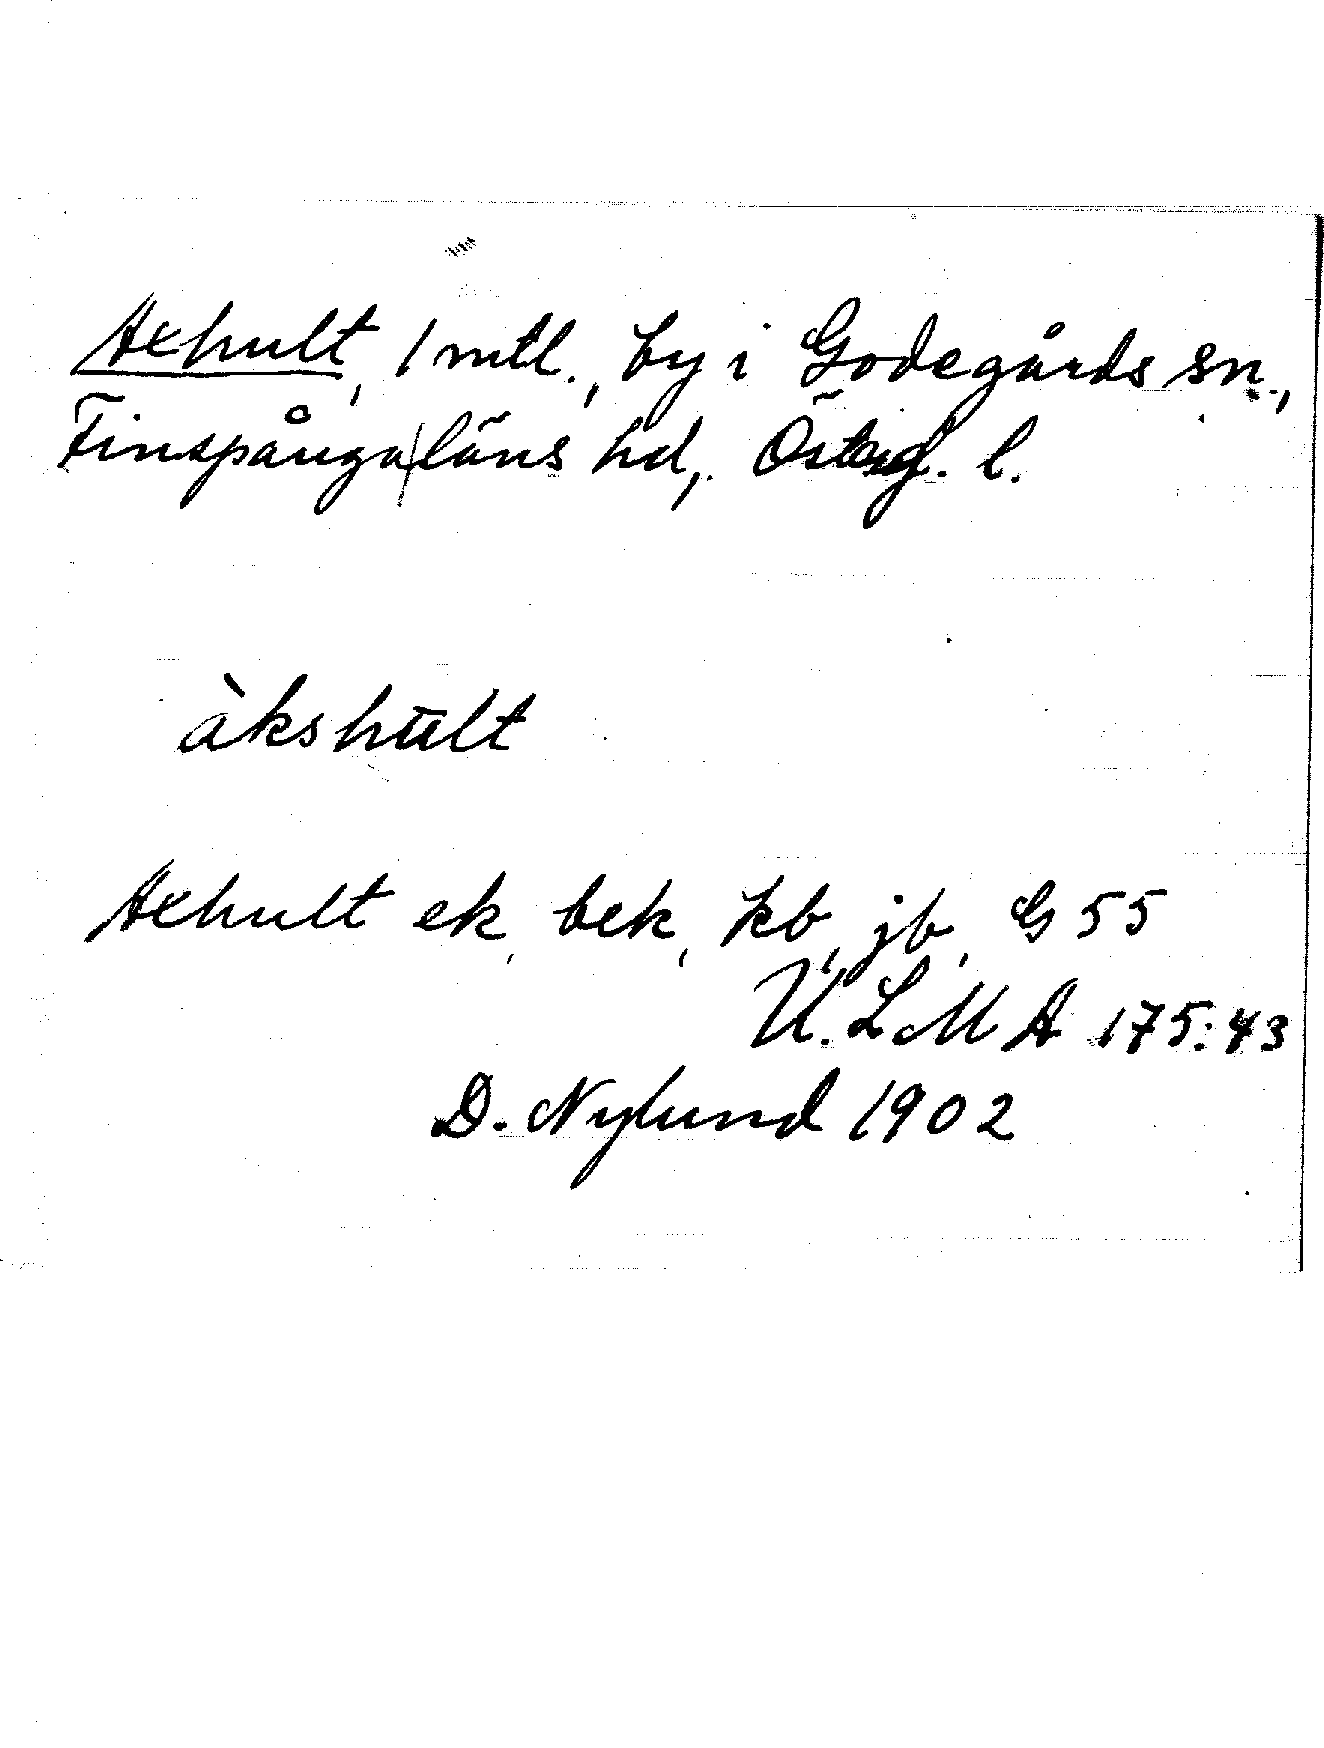 Axhult, 1 mtl., by i Godegårds sn.,
Finspånga läns hd, Österg. l.
àkshūlt
Axhult ek, bek, kb, jb, G 55
U. L M A 175:43
D. Nylund 1902